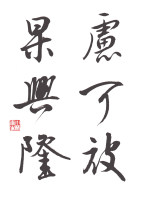 慮可被
果興隆